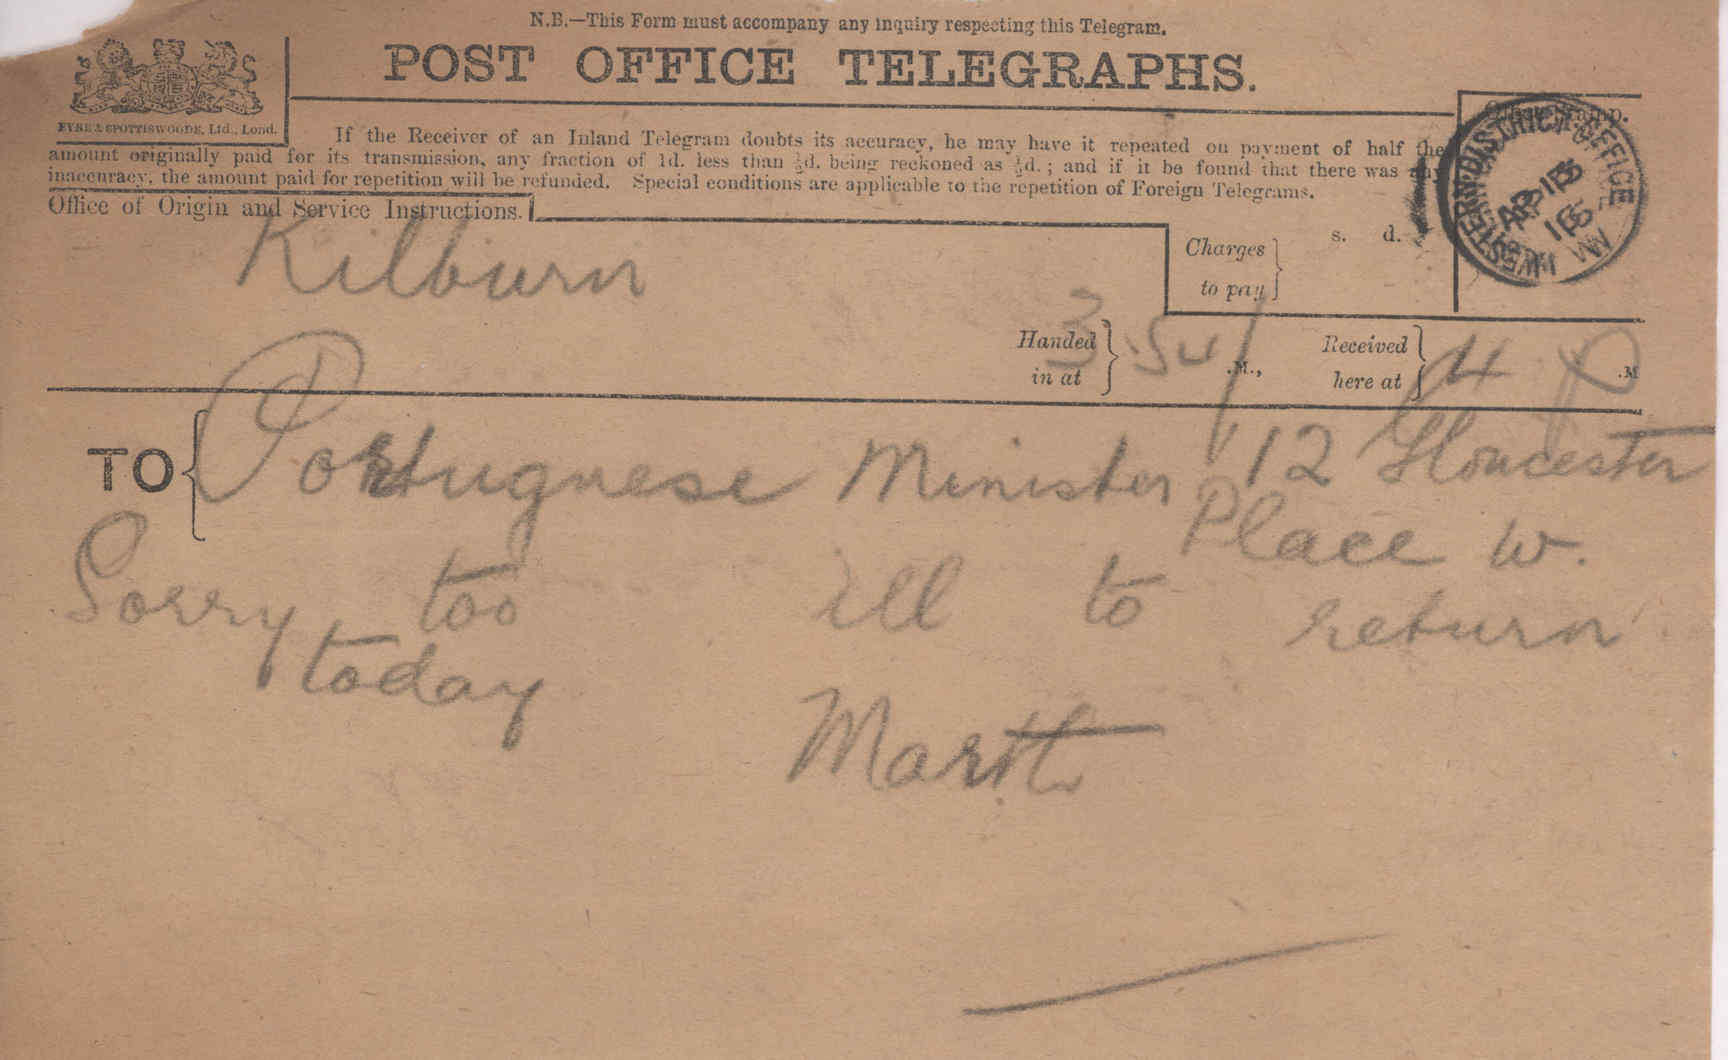 N.B.—This Form must accompany any inquiry respecting this Telegram.
POST OFFICE TELEGRAPHS.
EYRE & SPOTTISWOODE, Ltd., Lond.
If the Receiver of an Inland Telegram doubts its accuracy, he may have it repeated on payment of half the
amount originally paid for its transmission, any fraction of 1d. less than ½d. being reckoned as ½d.; and if it be found that there was any
inaccuracy, the amount paid for repetition will be refunded. Special conditions are applicable to the repetition of Foreign Telegrams.
Office of Origin and Service Instructions.
Office Stamp.
WESTERN DISTRICT OFFICE
AP
W
Kilburn
Charges to pay
s. d.
Handed in at 3.54 .M.,
Received here at 4 P .M
TO Portuguese Minister 12 Gloucester
Place W.
Sorry too ill to return
today